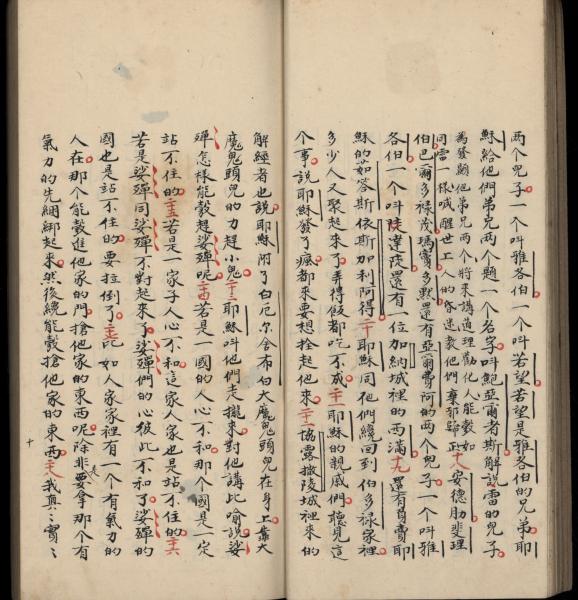 两个兒子一个叫雅各伯一个叫若望若望是雅各伯的兄弟耶
穌給他們弟兄两个題一个名字叫鮑亞爾者斯解說雷的兒子
為發顯他弟兄两个將來講道理勸化人能彀如
同雷一樣喊醒世上人的昏迷教他們棄邪歸正十八安德肋斐理
伯巴爾多祿茂瑪竇多默還有亞爾費阿的两个兒子一个叫雅
各伯一个叫陡達陡還有一位加納城里的西满十九還有茹達耶
穌的如答斯依斯加利阿得二十耶穌同他們纔回到伯多禄家裡
多少人又聚起來了弄得飯都吃不成二十一耶穌的親戚們聽見這
个事說耶穌發了瘋都來要想拴起他來二十二協露撒陵城裡來的
解經者也說耶穌附了白厄尔舍布白大魔鬼頭兒在身上靠大
魔鬼頭兒的力趕小鬼二十三耶穌叫他們走攏來對他講比喻說娑
殫怎樣能彀趕娑殫呢二十四若是一國的人心不和那个國是一定
站不住的二十五若是一家子人心不和這家人家也是站不住的二十六
若是娑殫同娑殫不對起來了娑殫們的心彼此不和了娑殫的
國也是站不住的要拉倒了二十七比如人家家裡有一个有氣力的
人在那个能彀進他家的門搶他家的東西呢除非是要拿那个有
氣力的先綑綁起來然後纔能彀搶他家的東西二十八我真真實實
十